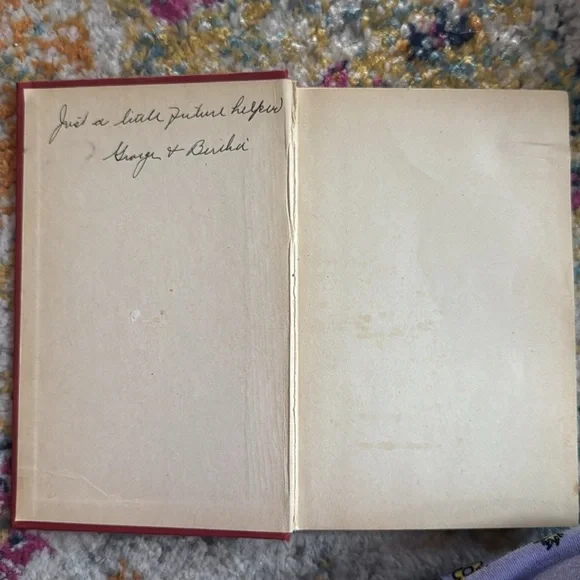 Just a little future helper
George & Bertha